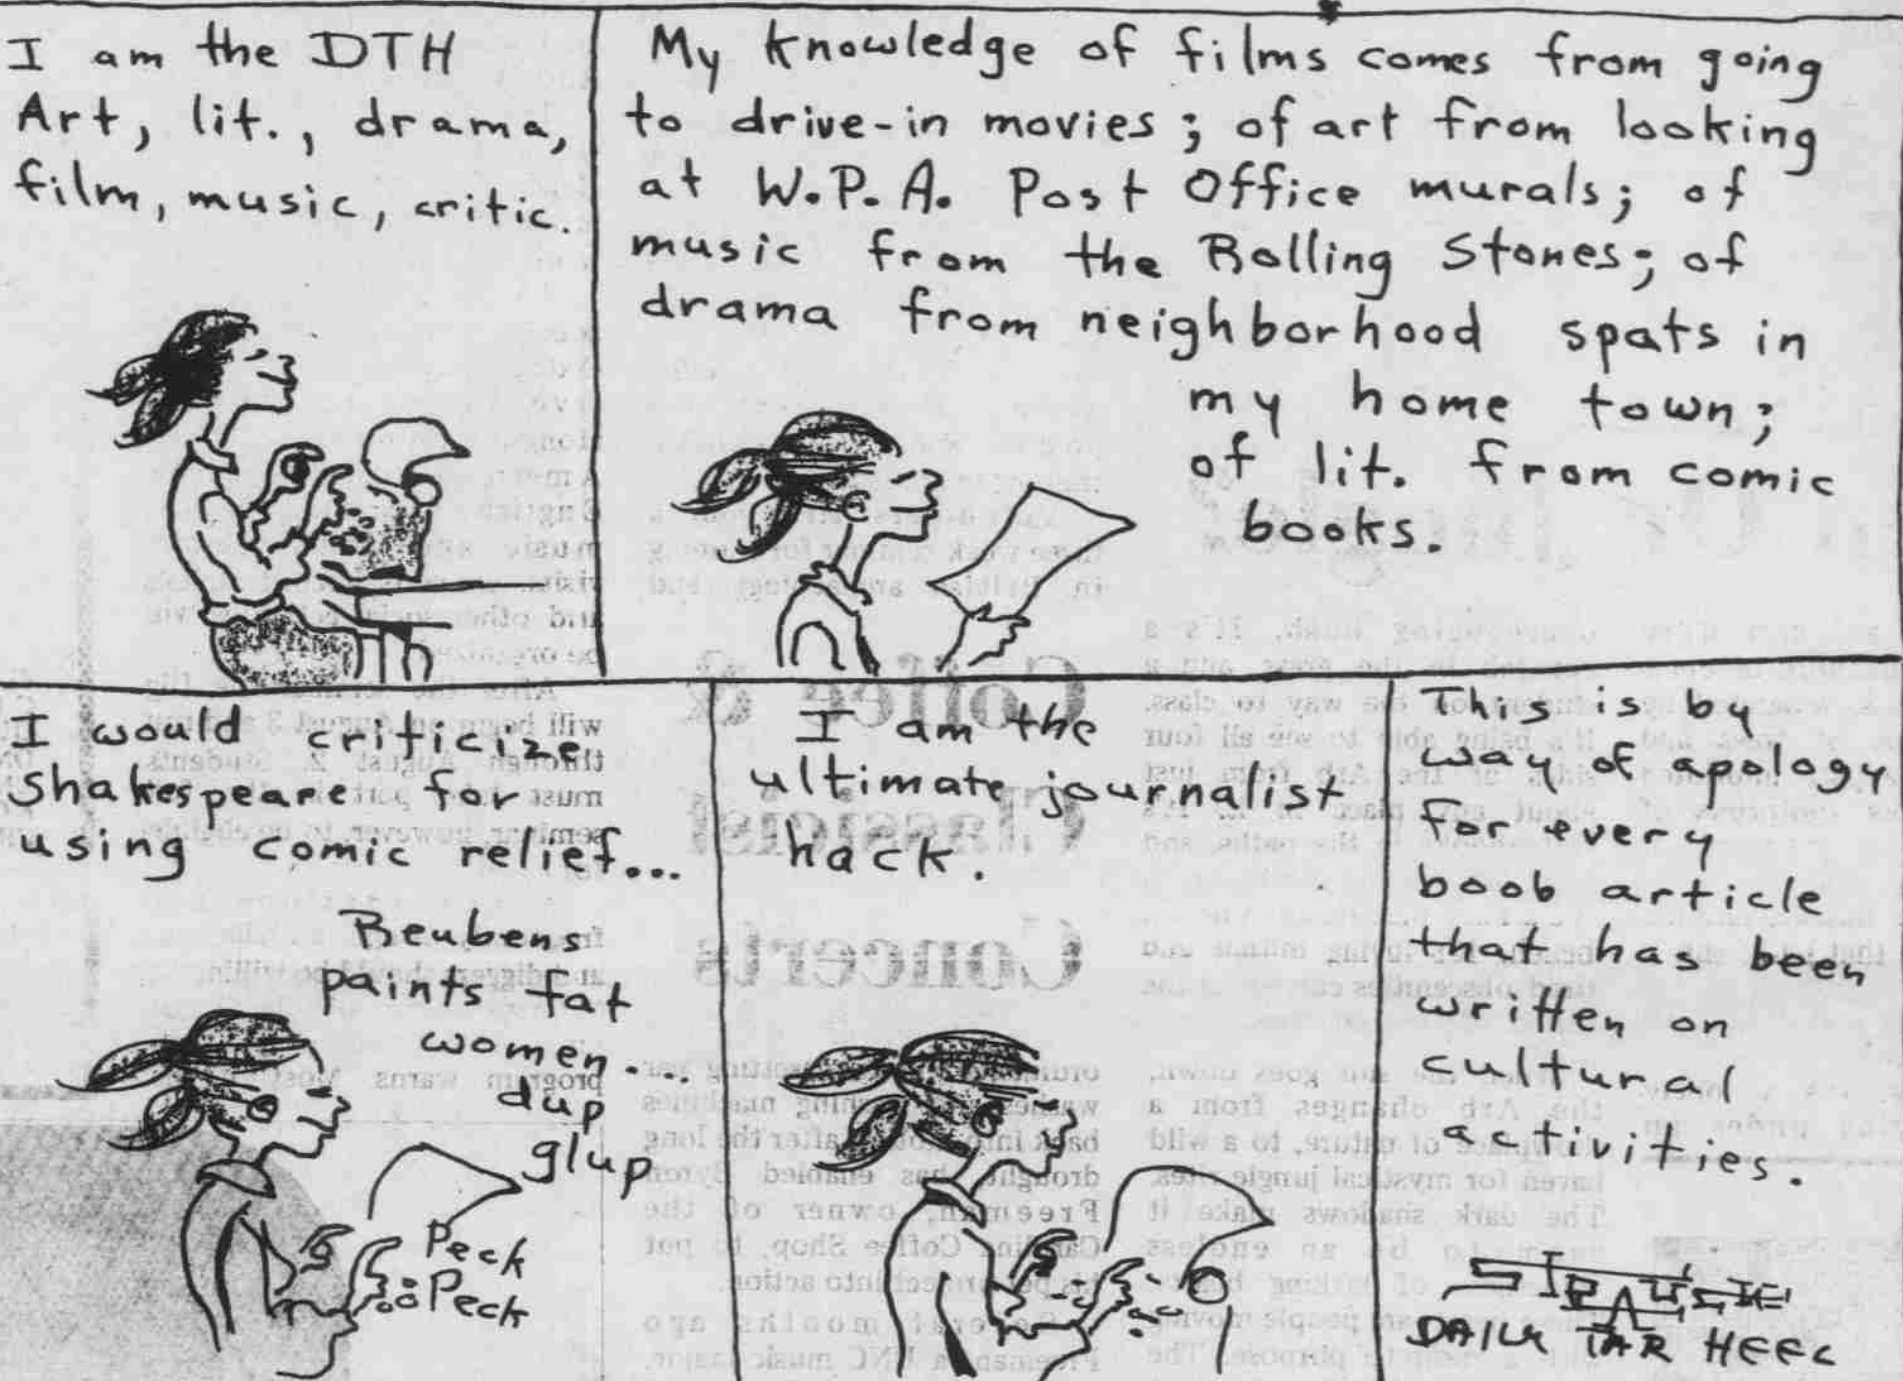 I am the DTH
Art, lit., drama,
film, music, critic.
My knowledge of films comes from going
to drive-in movies; of art from looking
at W.P.A. Post Office murals; of
music from the Rolling Stones; of
drama from neighborhood spats in
my home town;
of lit. from comic
books.
I would criticize
Shakespeare for
using comic relief...
Reubens
paints fat
women....
dup
glup
Peck
Peck
I am the
ultimate journalist
hack.
This is by
way of apology
for every
boob article
that has been
written on
cultural
activities.
DAILY TAR HEEL